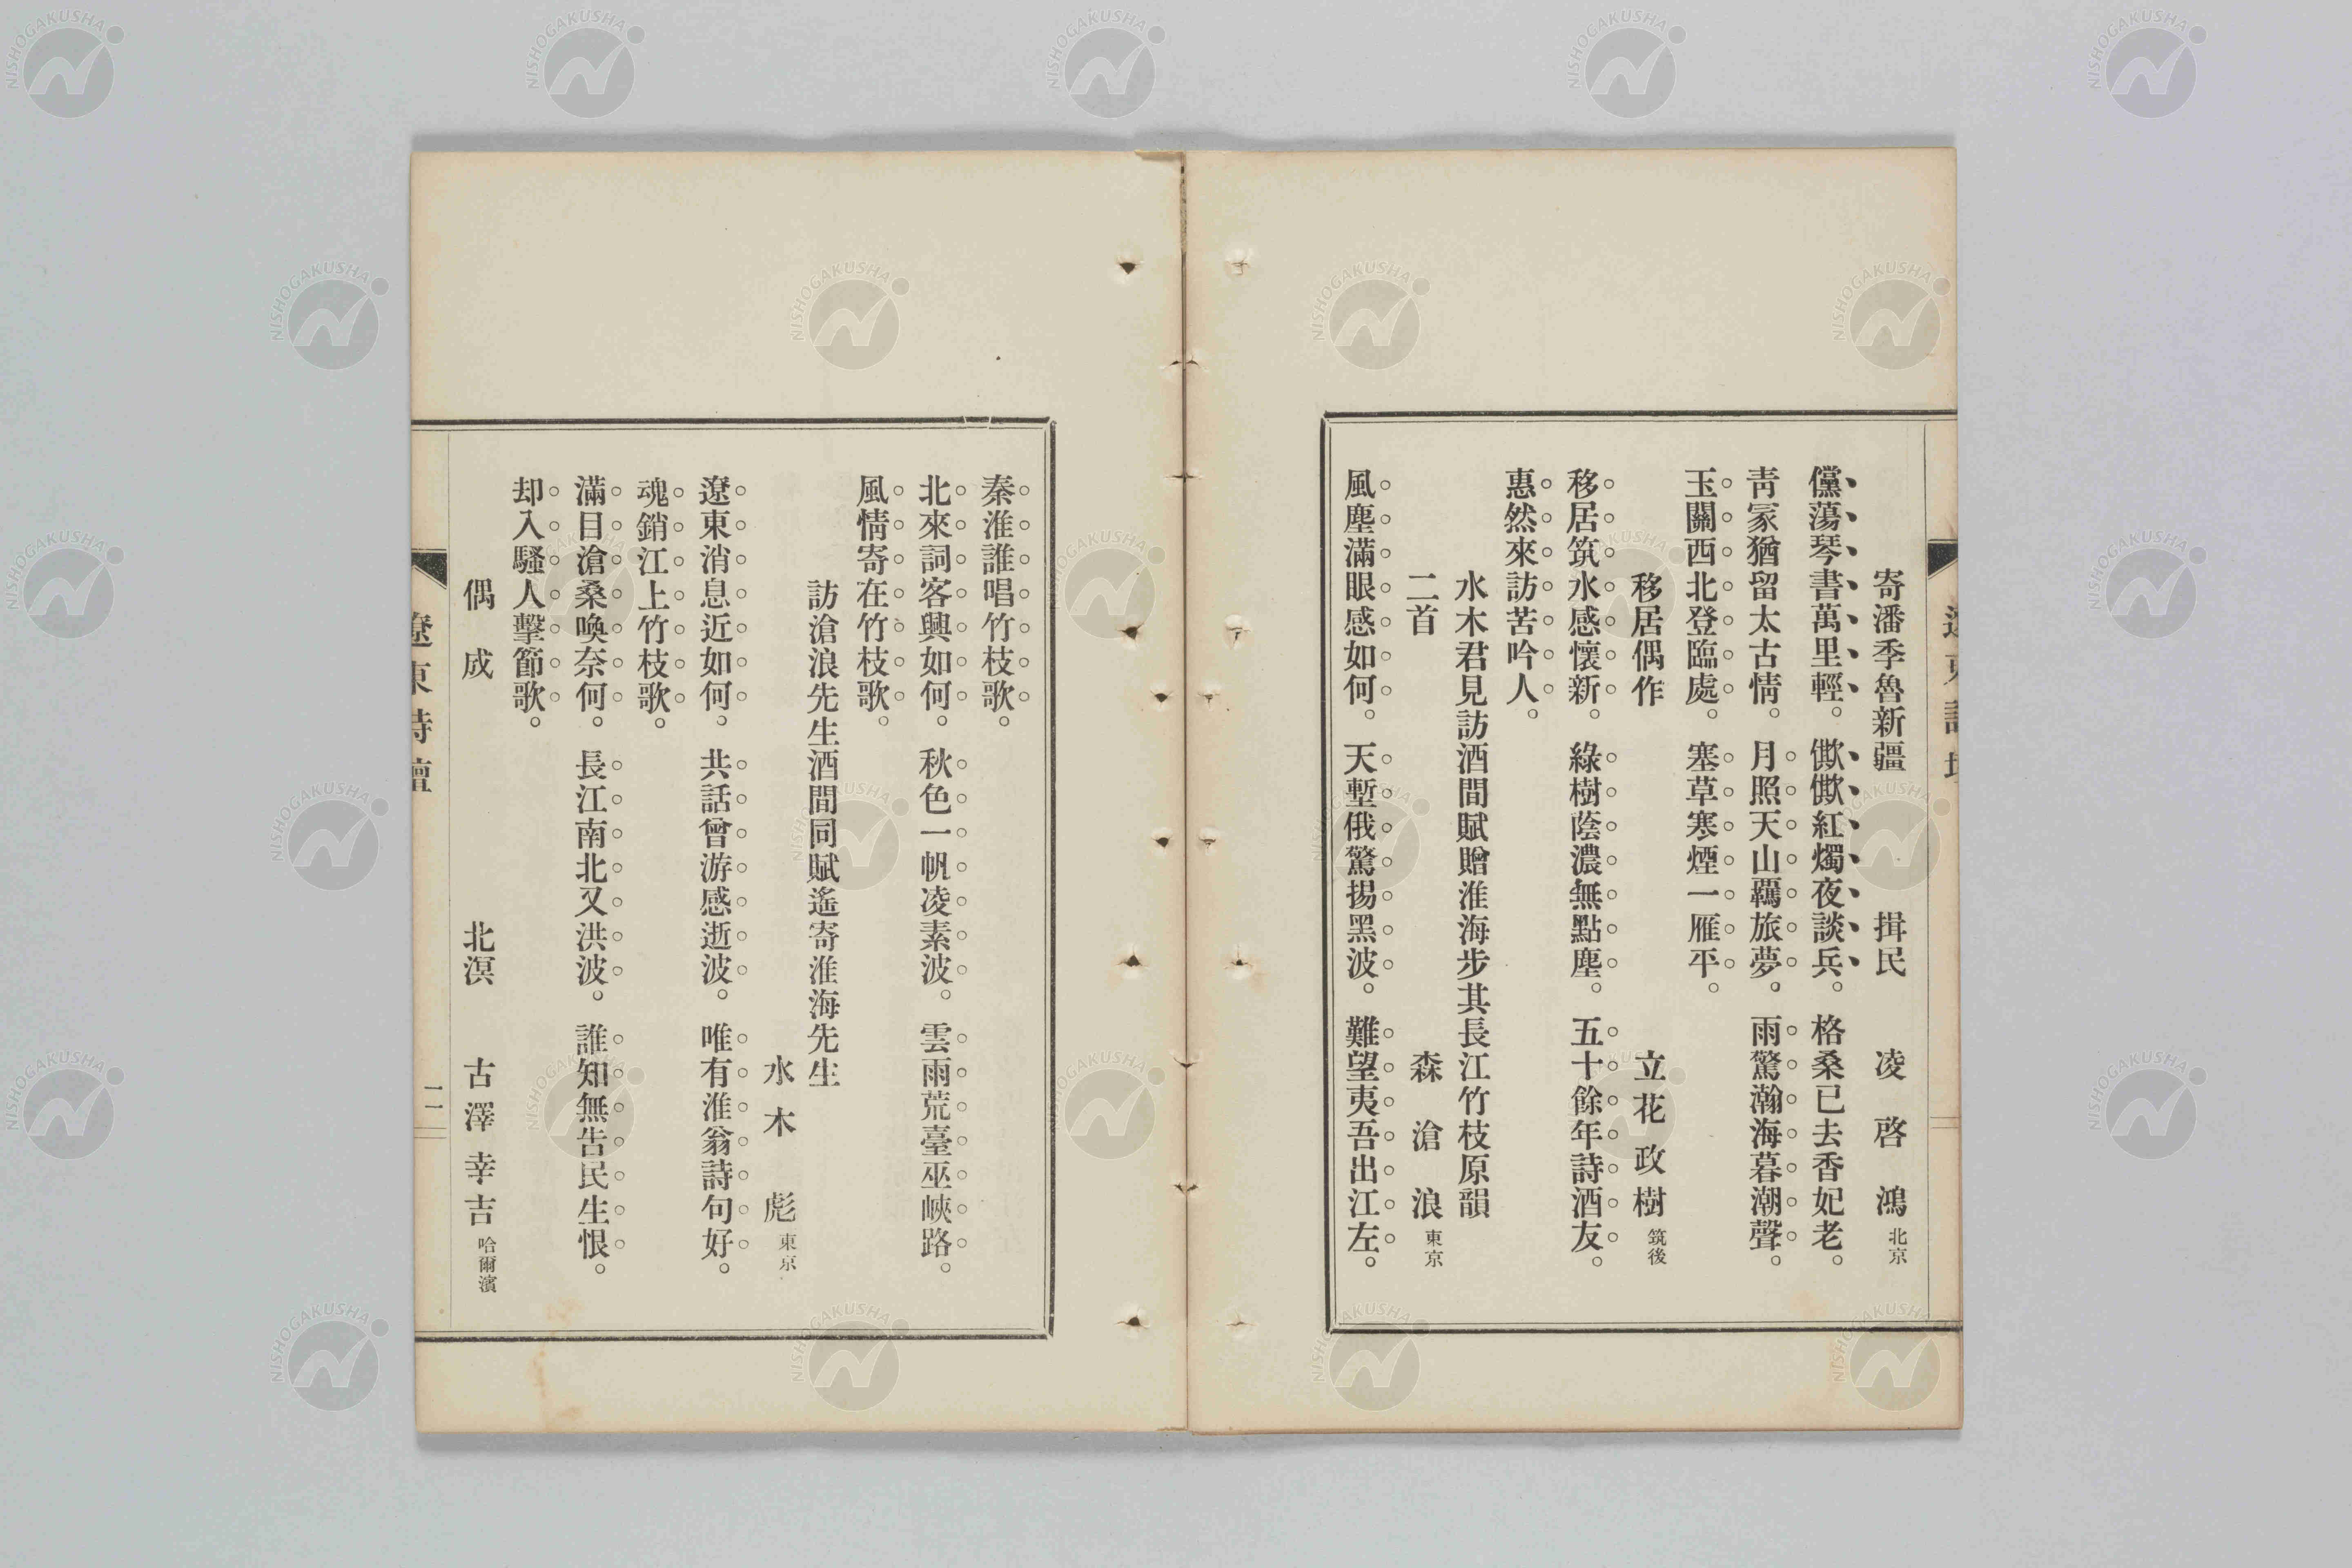 寄潘季魯新疆　揖民　凌啓鴻 北京
儻蕩琴書萬里輕。僛僛紅燭夜談兵。格桑已去香妃老。
靑冢猶留太古情。月照天山羈旅夢。雨驚瀚海暮潮聲。
玉關西北登臨處。塞草寒煙一雁平。
移居偶作　立花政樹 筑後
移居筑水感懷新。綠樹蔭濃無點塵。五十餘年詩酒友。
惠然來訪苦吟人。
水木君見訪酒間賦贈淮海步其長江竹枝原韻
二首　森滄浪 東京
風塵滿眼感如何。天塹俄驚揚黑波。難望夷吾出江左。
秦淮誰唱竹枝歌。
北來詞客興如何。秋色一帆凌素波。雲雨荒臺巫峽路。
風情寄在竹枝歌。
訪滄浪先生酒間同賦遙寄淮海先生
水木彪 東京
遼東消息近如何。共話曾游感逝波。唯有淮翁詩句好。
魂銷江上竹枝歌。
滿目滄桑喚奈何。長江南北又洪波。誰知無告民生恨。
却入騷人擊節歌。
偶成　北溟　古澤幸吉 哈爾濱
遼東詩壇
二一
NISHOGAKUSHA